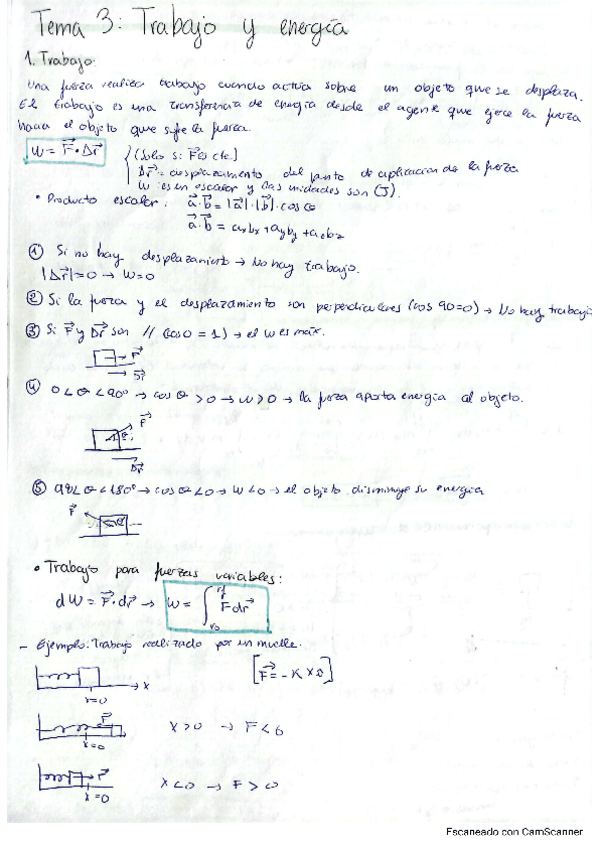 Tema 3: Trabajo y energía
1. Trabajo:
Una fuerza realiza trabajo cuando actúa sobre un objeto que se desplaza.
El trabajo es una transferencia de energía desde el agente que ejerce la fuerza
hacia el objeto que sufre la fuerza.
W = F⃗ · Δr⃗ (Solo si F⃗ es cte)
Δr⃗ = desplazamiento del punto de aplicación de la fuerza
W: es un escalar y las unidades son (J).
• Producto escalar: a⃗·b⃗ = |a⃗|·|b⃗|·cos
a⃗·b⃗ = axbx + ayby + azbz
① Si no hay desplazamiento → No hay trabajo.
|Δr⃗| = 0 → W = 0
② Si la fuerza y el desplazamiento son perpendiculares (cos 90 = 0) → No hay trabajo
③ Si F⃗ y Δr⃗ son // (cos 0 = 1) → el W es máx.
F⃗
Δr⃗
④ 0 < θ < 90° → cos θ > 0 → W > 0 → la fuerza aporta energía al objeto.
F⃗
θ
Δr⃗
⑤ 90 < θ < 180° → cos θ < 0 → W < 0 → el objeto disminuye su energía
F⃗
θ
• Trabajo para fuerzas variables:
dW = F⃗ · dr⃗ → W = ∫ F dr⃗
- Ejemplo: Trabajo realizado por un muelle.
x
x=0
F⃗
x=0
x > 0 → F < 0
F⃗
x=0
x < 0 → F > 0
Escaneado con CamScanner